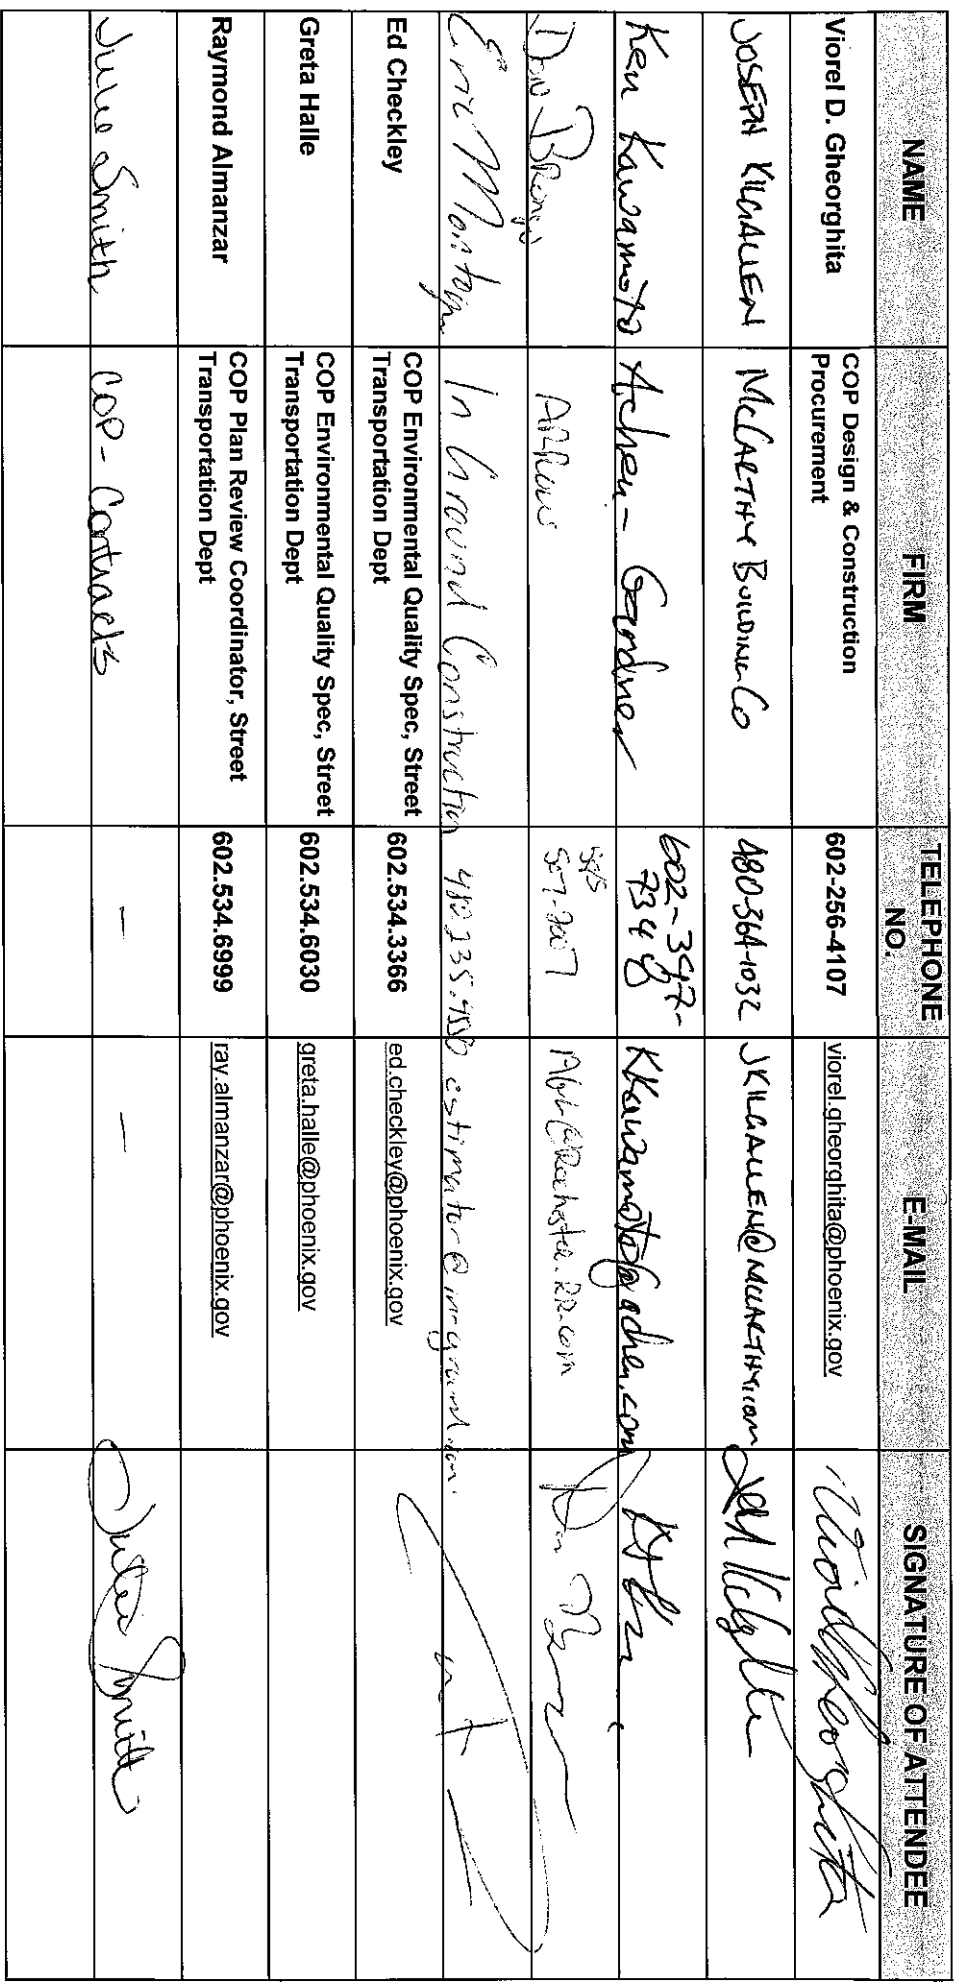 NAME FIRM TELEPHONE NO. E-MAIL SIGNATURE OF ATTENDEE
Viorel D. Gheorghita COP Design & Construction Procurement 602-256-4107 viorel.gheorghita@phoenix.gov
JOSEPH KILGALLEN McCARTHY BUILDING Co 480-364-1032 JKILGALLEN@MCCARTHY.com
Ken Kawamoto Achen-Gardner 602-347-7348 KKawamoto@achen.com
Dan ARROW 585 507-2007
Eric Montoya In Ground Construction estimator@inground.com
Ed Checkley COP Environmental Quality Spec, Street Transportation Dept 602.534.3366 ed.checkley@phoenix.gov
Greta Halle COP Environmental Quality Spec, Street Transportation Dept 602.534.6030 greta.halle@phoenix.gov
Raymond Almanzar COP Plan Review Coordinator, Street Transportation Dept 602.534.6999 ray.almanzar@phoenix.gov
Julie Smith COP - Contracts — — Julie Smith